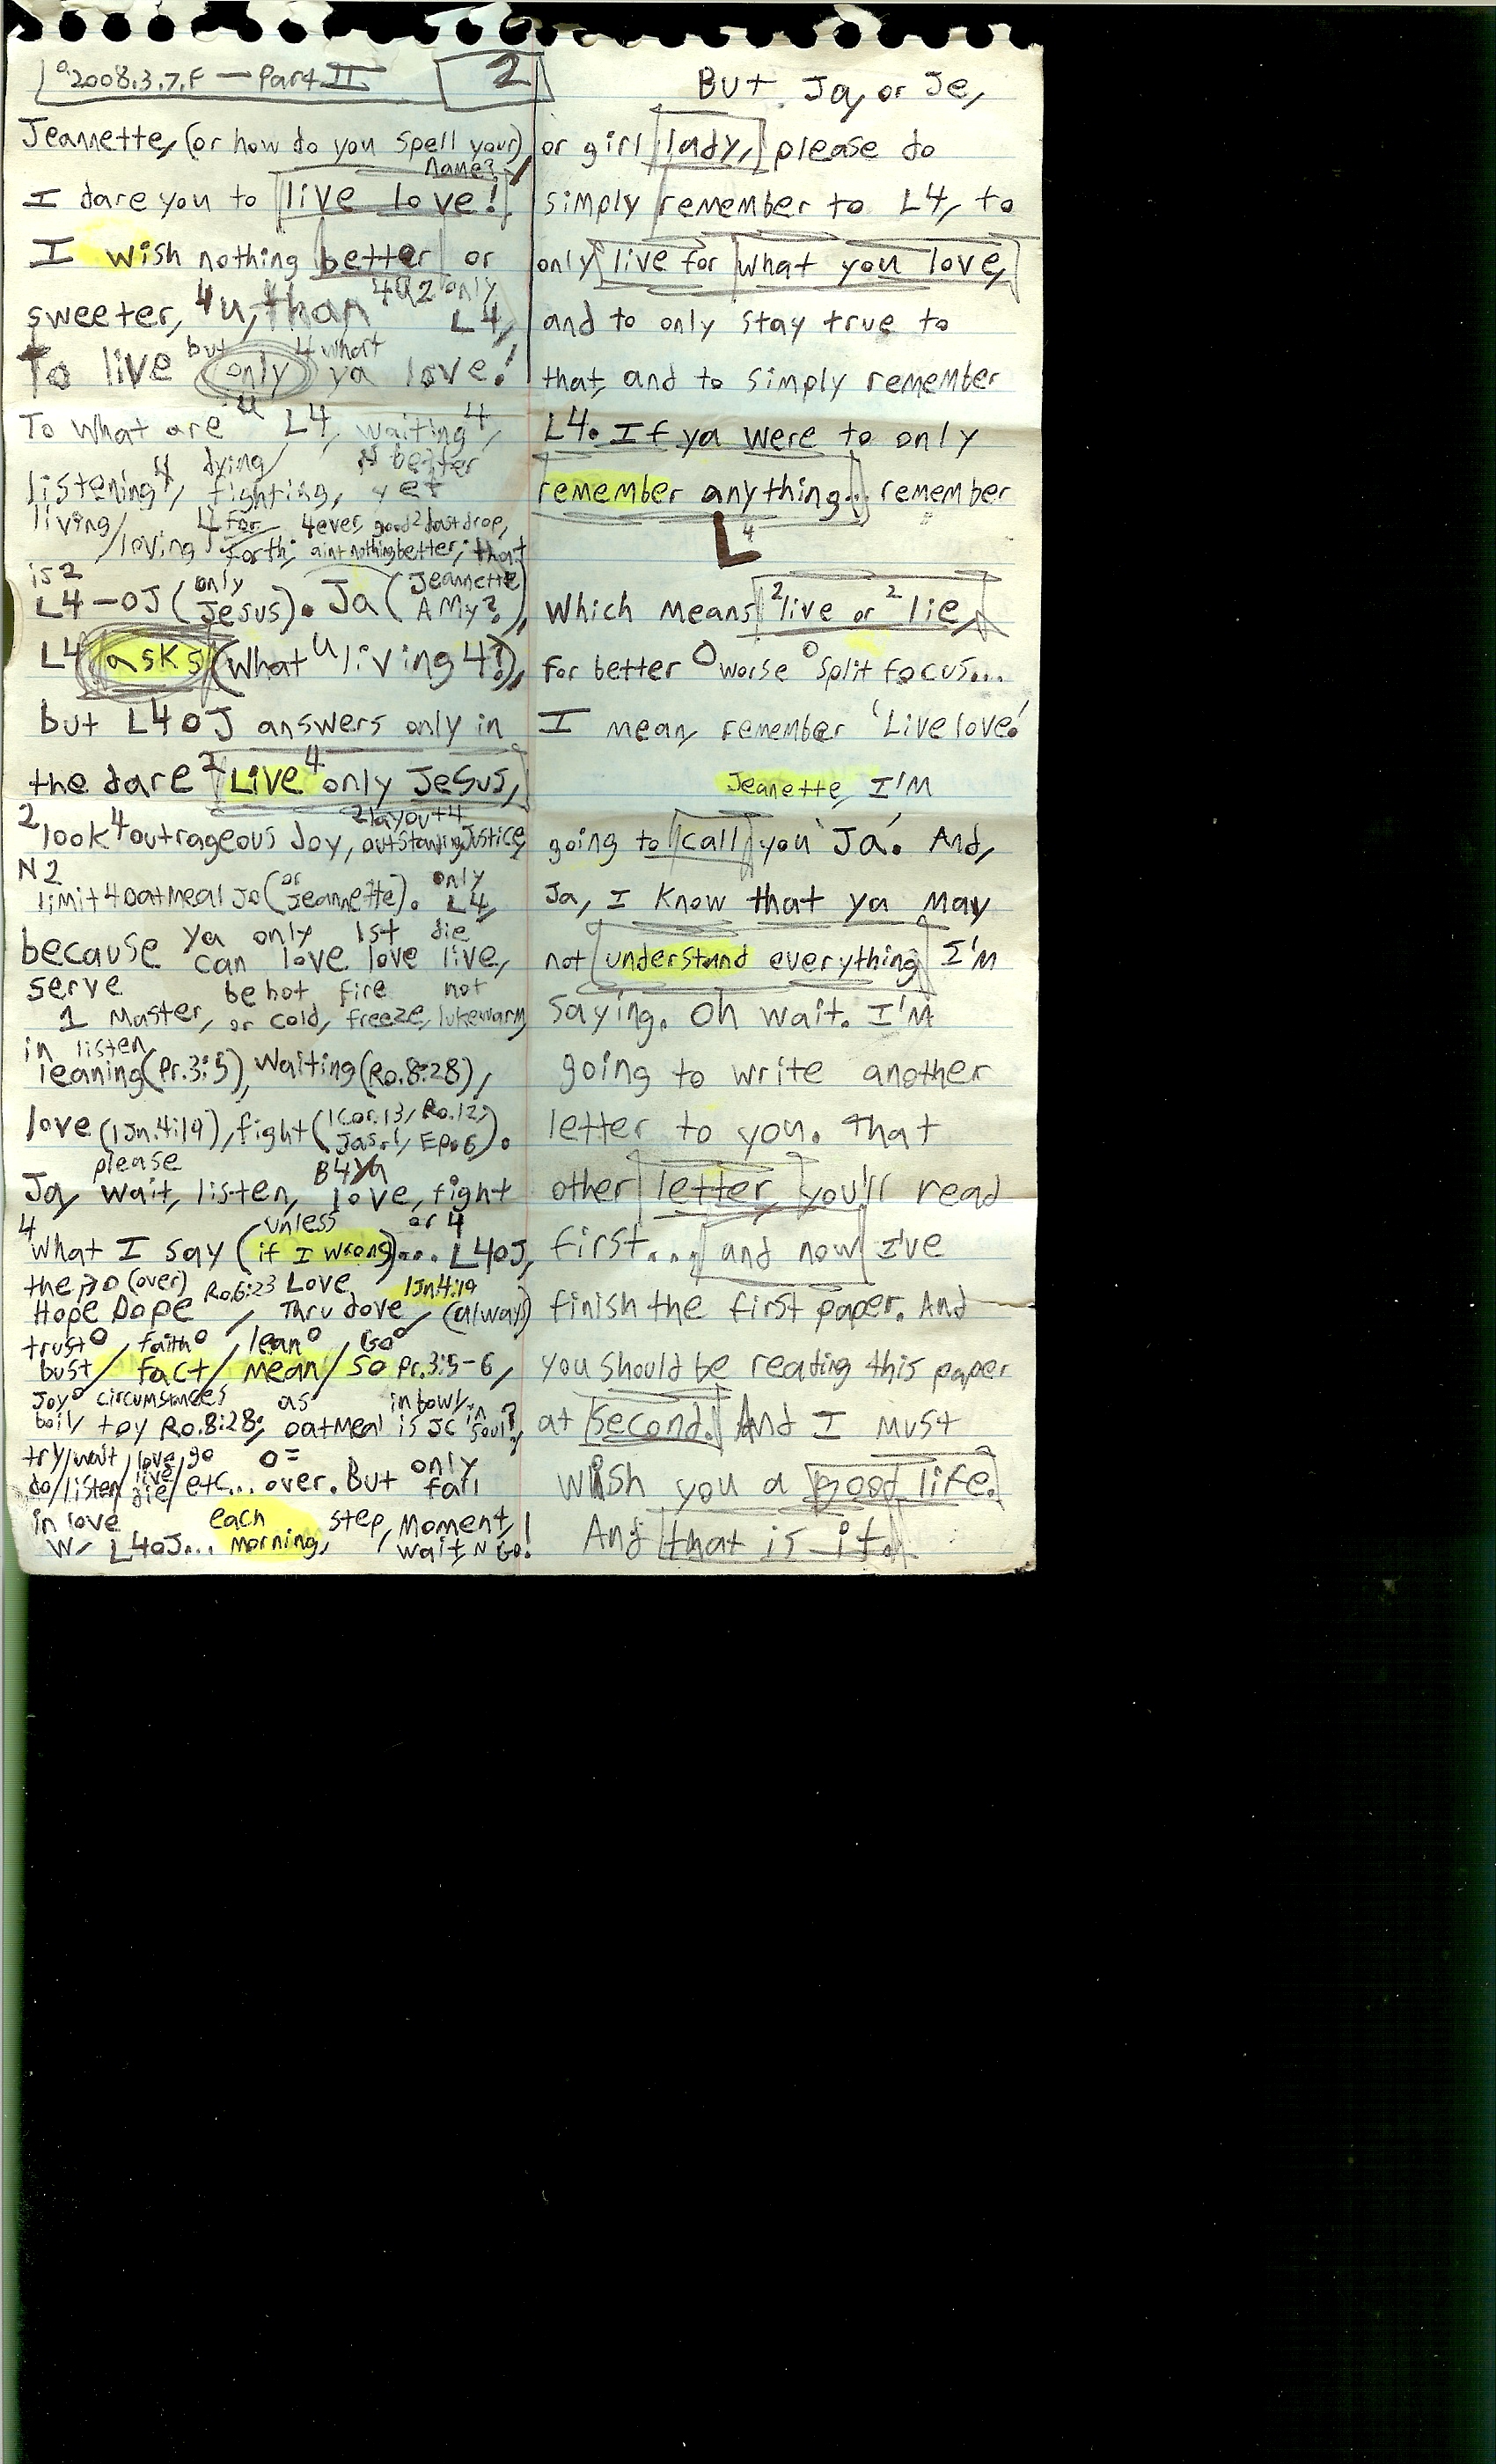 2008.3.7.F — Part II 2
Jeannette, (or how do you spell your name?)
I dare you to live love!
I wish nothing better or
sweeter, 4u, than 4u2 only L4,
To live but only 4 what ya love!
To what are u L4, waiting 4,
listening 4, dying/fighting, N better yet
living/loving 4 for forth; 4ever, good 2 last drop, aint nothing better; that
is 2 L4-OJ (only Jesus). Ja (Jeannette AMy?),
L4 asks (what u living 4?),
but L4OJ answers only in
the dare 2 Live 4 only Jesus,
2 look 4 outrageous Joy, 2 layout 4 outstanding Justice,
N2 limit 4 oatmeal Jo (or Jeannette). only L4,
because ya only 1st die
can love love live,
serve be hot fire not
1 Master, or cold, freeze, lukewarm
in listen
leaning (Pr.3:5), waiting (Ro.8:28),
love (1Jn.4:19), fight (1Cor.13, Ro.12; Jas.1, Ep.6).
Ja, please wait, listen, B4 ya love, fight
4 what I say (unless if I wrong)... or 4 L4OJ,
the (over) Ro.6:23 Love 1Jn4:19
Hope Dope, Thru dove, (always)
trust°/faith°/lean°/Go°
bust/fact/mean/so Pr.3:5-6,
Joy° circumstances as in bowl, in
boil, toy Ro.8:28; oatmeal is JC soul?,
try/wait/love/go O= only
do/listen/live/die/etc... over. But fall
in love each step, moment,
w/ L4OJ... morning, wait N Go!
But Ja, or Je,
or girl lady, please do
simply remember to L4, to
only live for what you love,
and to only stay true to
that, and to simply remember
L4. If ya were to only
remember anything... remember
L4
Which means 2 live or 2 lie,
for better O worse O split focus...
I mean, remember 'Live love!'
Jeanette, I'M
going to call you 'Ja'. And,
Ja, I know that ya may
not understand everything I'M
saying. Oh wait. I'M
going to write another
letter to you. That
other letter, you'll read
first... and now I've
finish the first paper. And
you should be reading this paper
at second. And I must
wish you a good life.
And that is it.